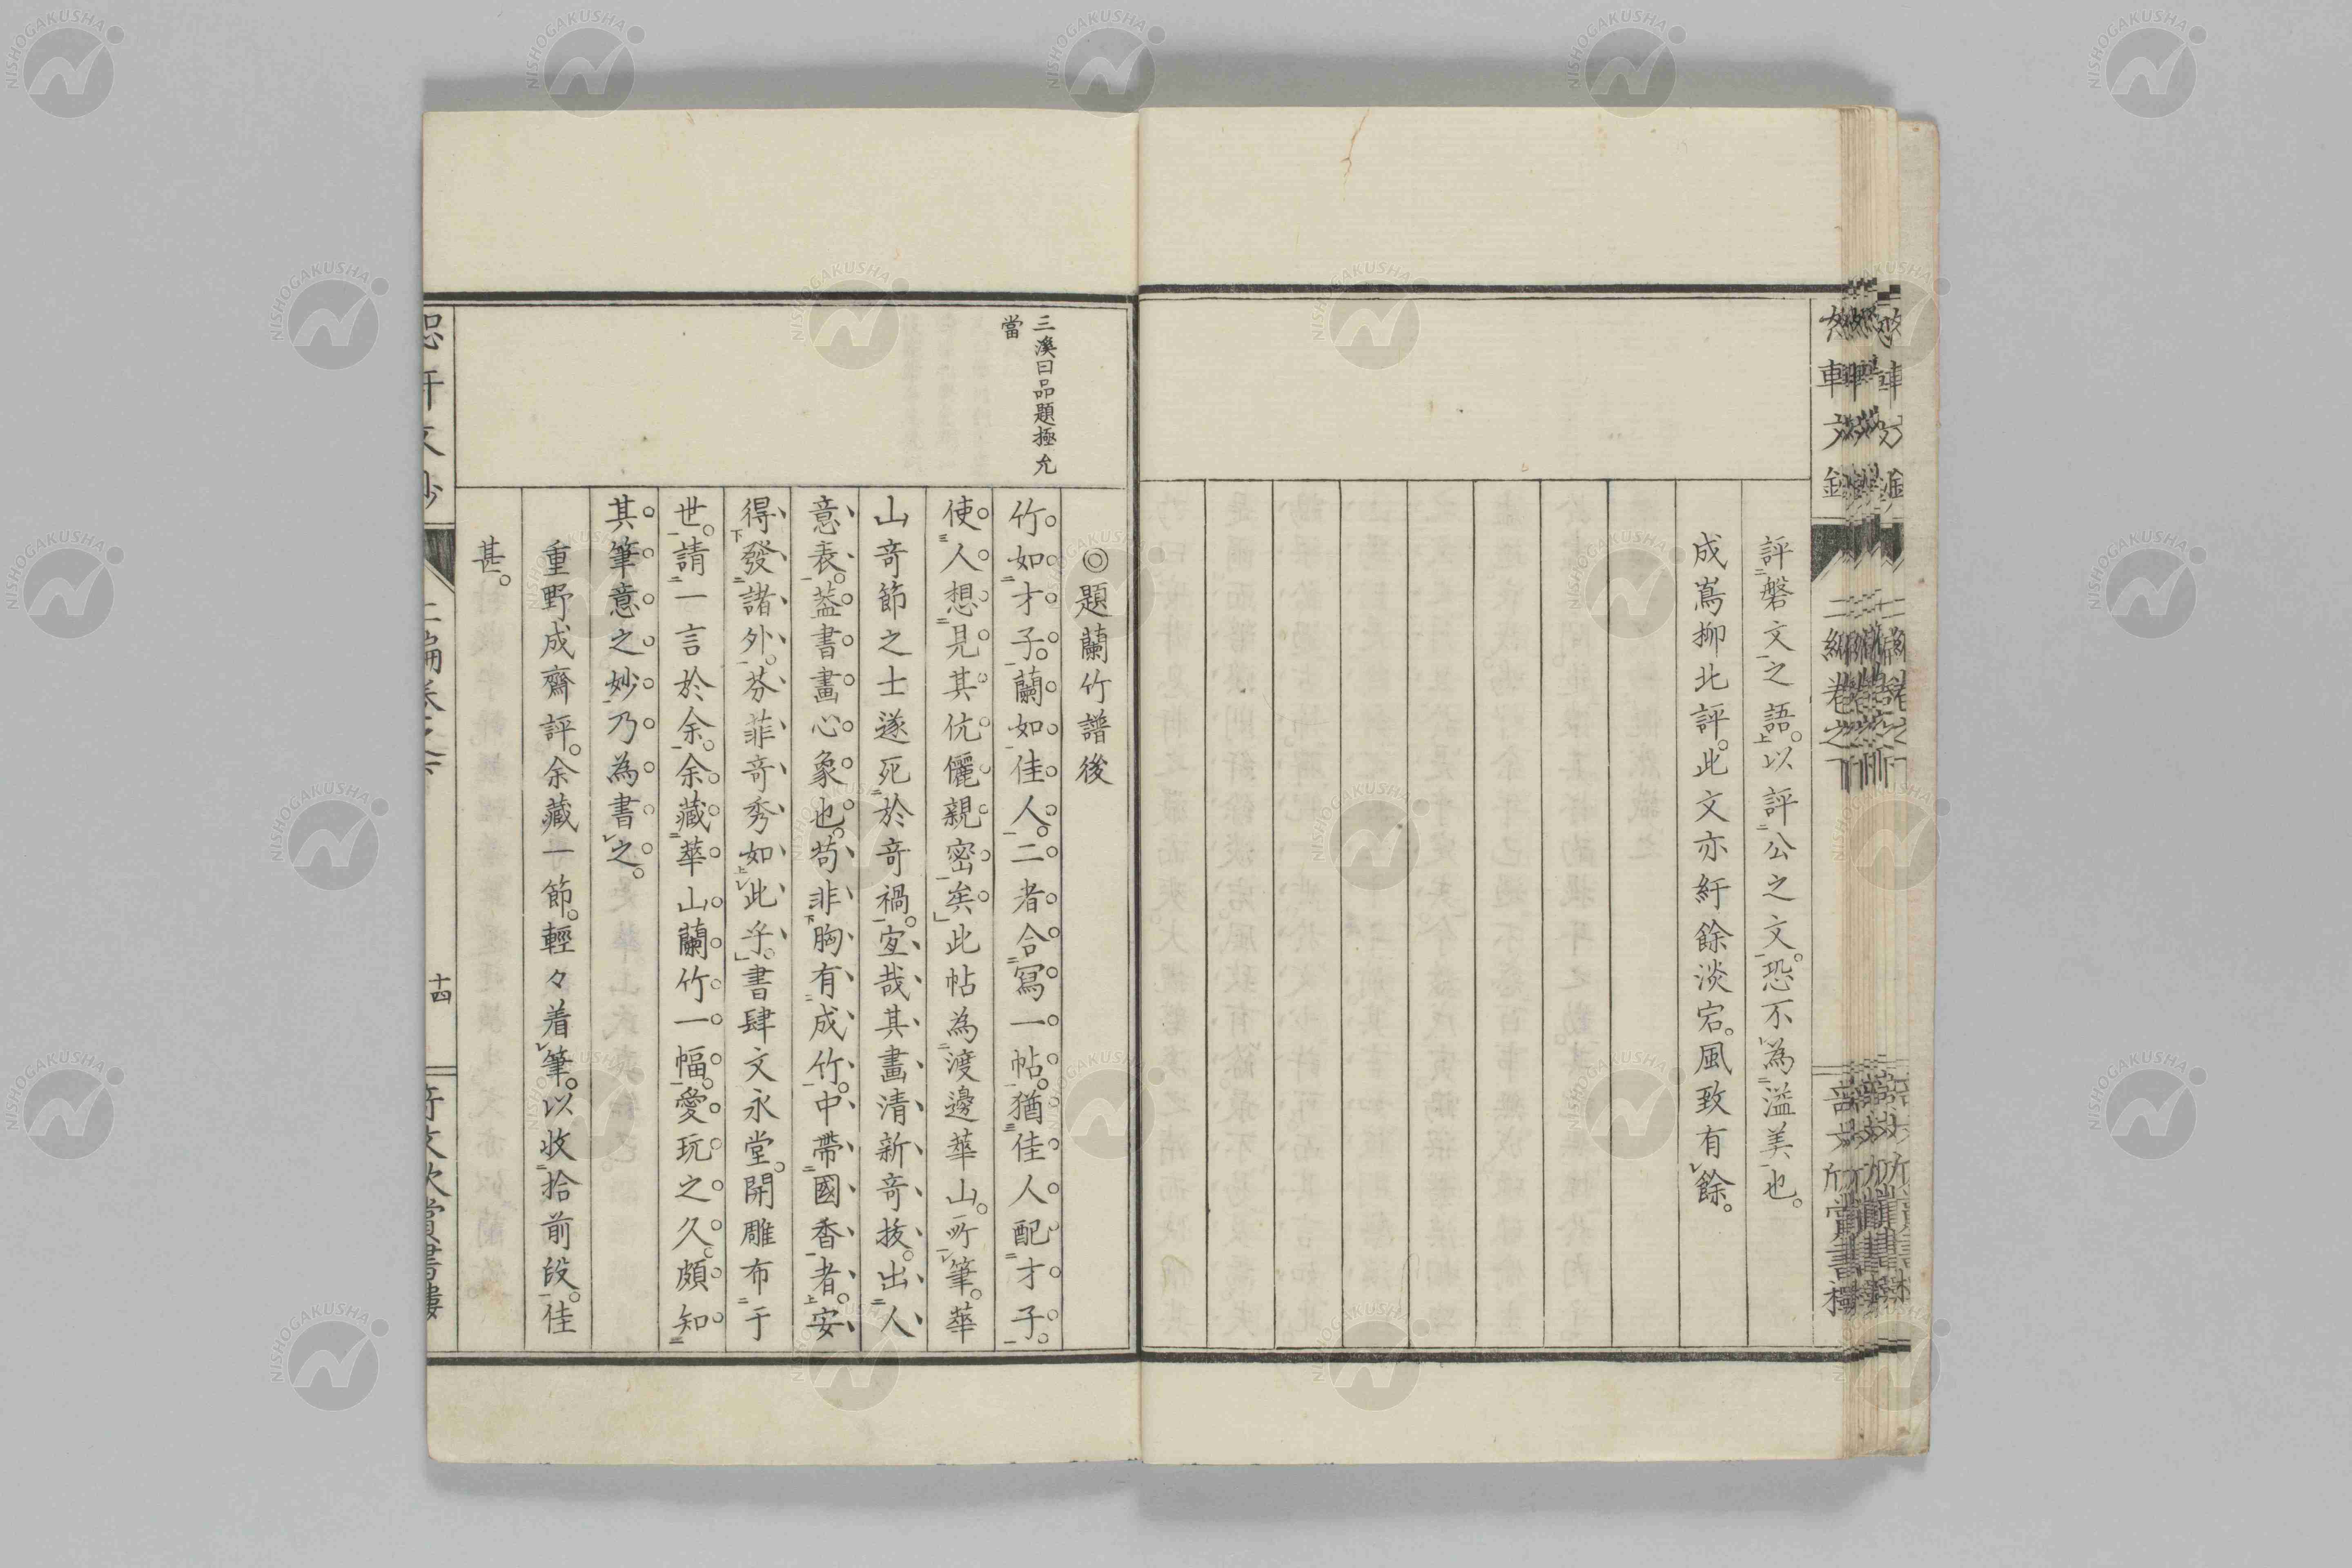 評磐文之語。以評公之文。恐不為溢美也。
成嶌柳北評。此文亦紆餘淡宕。風致有餘。
三溪曰品題極允
當
◎題蘭竹譜後
竹如才子。蘭如佳人。二者合寫一帖。猶佳人配才子。
使人想見其伉儷親密矣」此帖為渡邊華山。所筆。華
山竒節之士遂死於竒禍。宜哉其畫清新竒拔。出人
意表。葢書畫心象也。苟非胸有成竹。中帶國香者。安
得發諸外。芬菲竒秀如此乎。」書肆文永堂。開雕布于
世。請一言於余。余藏華山蘭竹一幅。愛玩之久。頗知
其筆意之妙。乃為書之。
重野成齋評。余藏一節。輕々着筆。以收拾前段。佳
甚。
二編卷之下
十四
奇文欣賞書樓
NISHOGAKUSHA